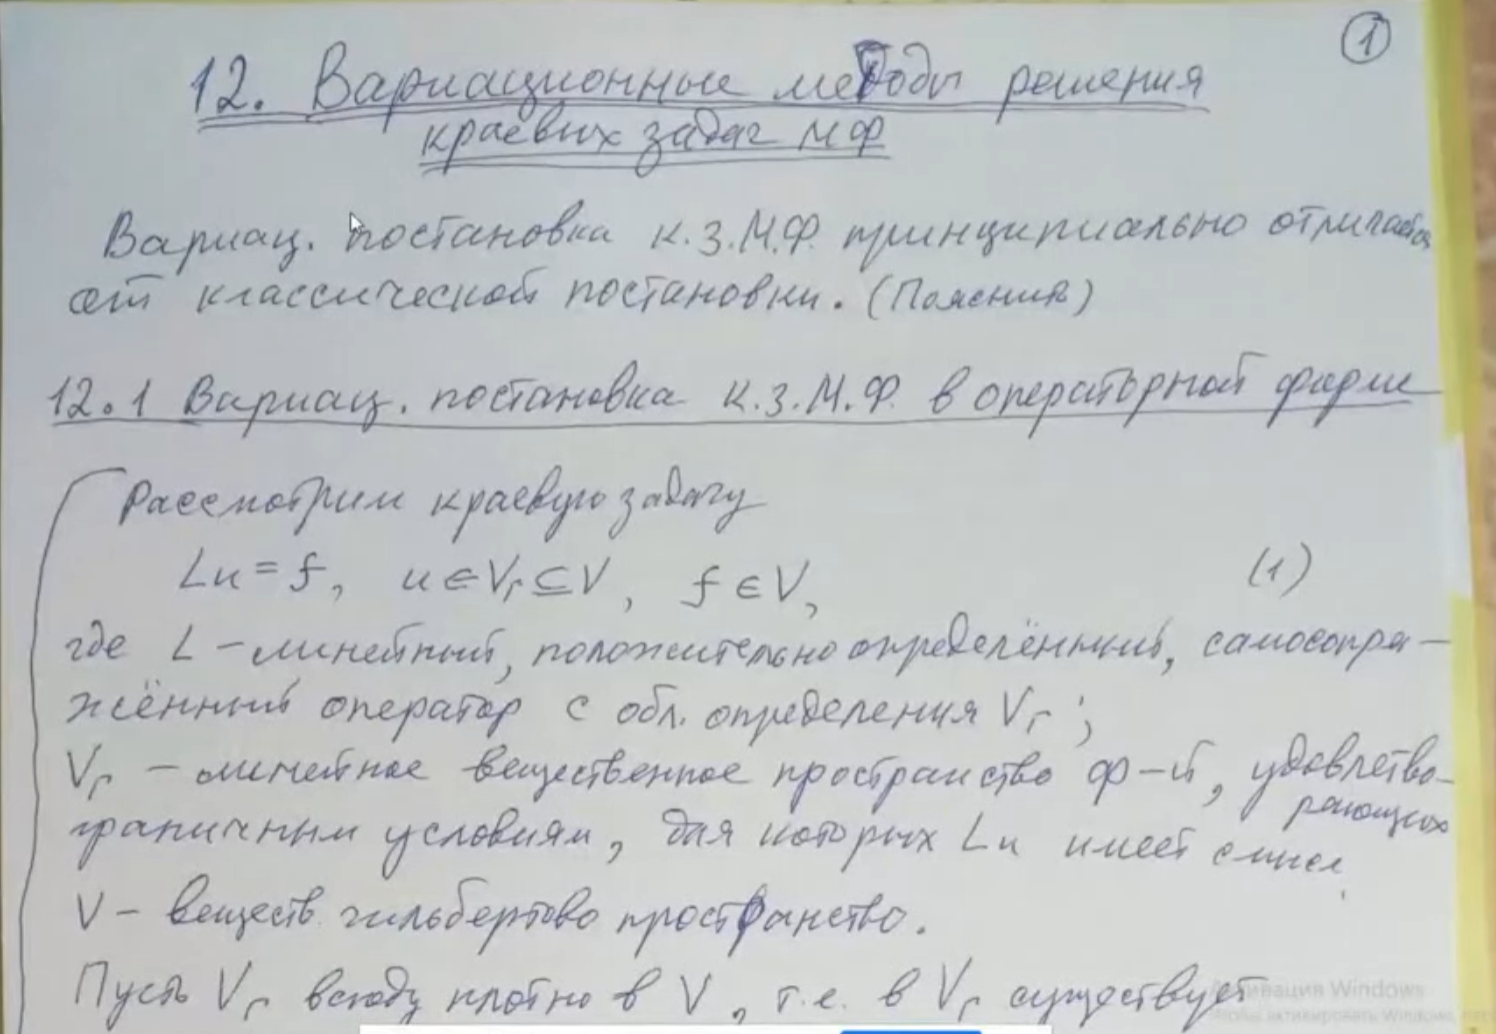 1
12. Вариационные методы решения
краевых задач МФ
Вариац. постановка к.з.М.Ф. принципиально отличается
от классической постановки. (Пояснить)
12.1 Вариац. постановка к.з.М.Ф. в операторной форме
Рассмотрим краевую задачу
Lu = f, u ∈ V_Г ⊆ V, f ∈ V, (1)
где L – линейный, положительно определённый, самосопря–
жённый оператор с обл. определения V_Г;
V_Г – линейное вещественное пространство ф-й, удовлетво-
ряющих
граничным условиям, для которых Lu имеет смысл.
V – веществ. гильбертово пространство.
Пусть V_Г всюду плотно в V, т.е. в V_Г существует
Активация Windows
Чтобы активировать Windows,